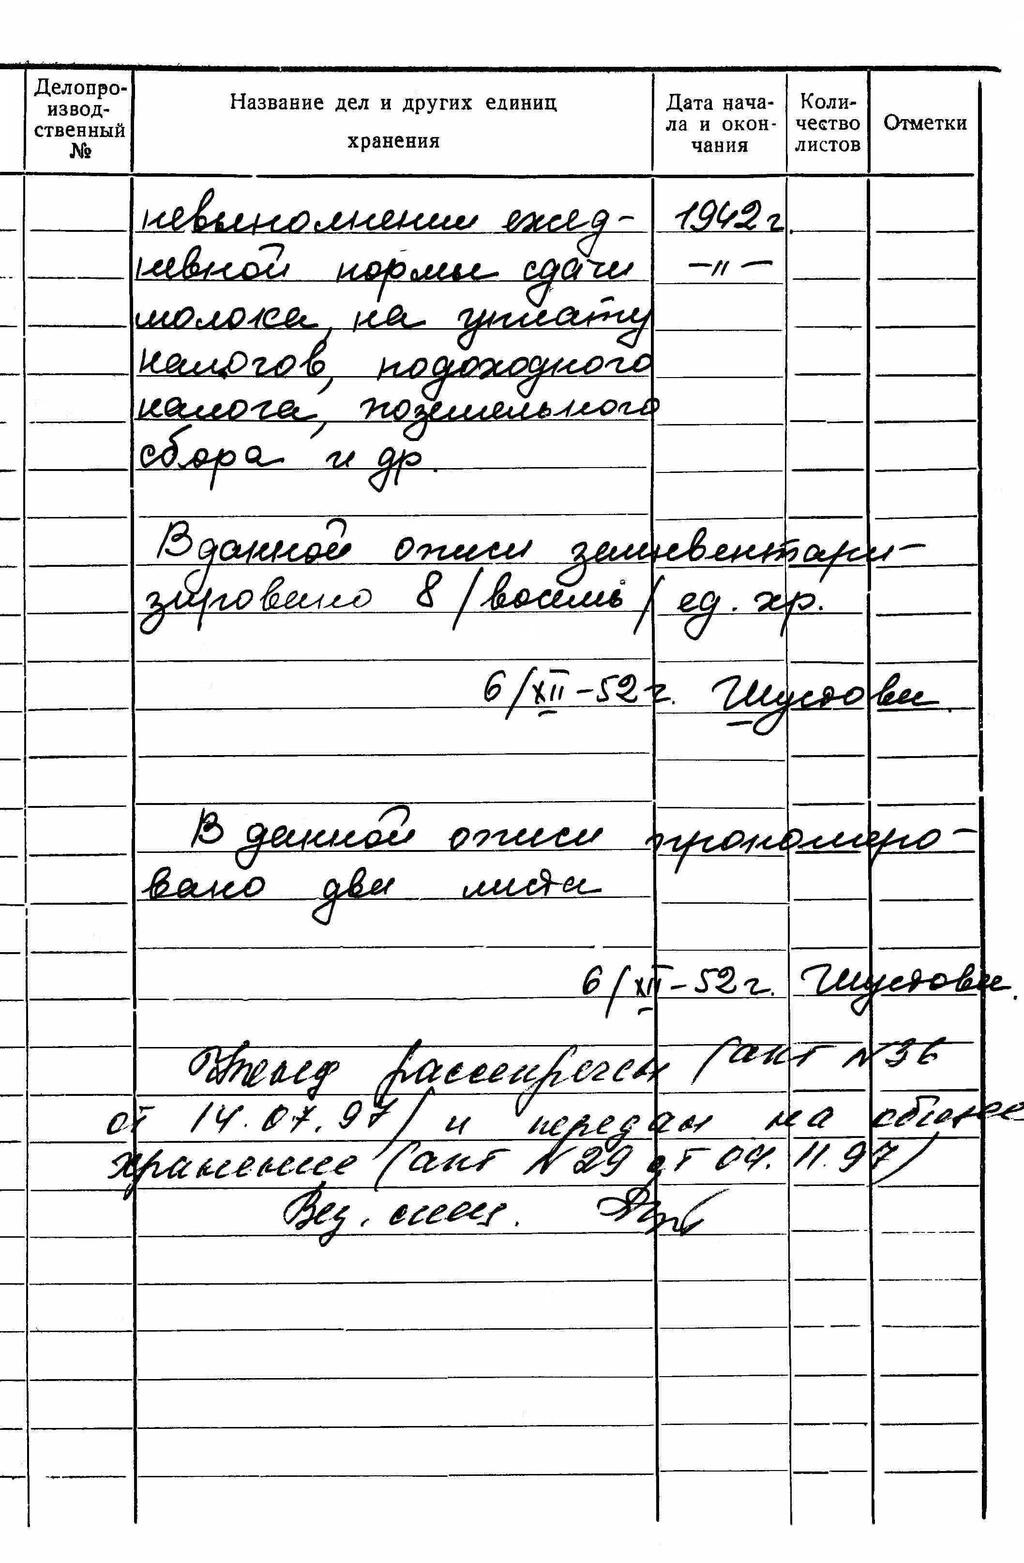 Делопро-
извод-
ственный
№
Название дел и других единиц
хранения
Дата нача-
ла и окон-
чания
Коли-
чество
листов
Отметки
невыполнении ежед- 1942 г.
невной нормы сдачи -"-
молока, на уплату
налогов, подоходного
налога, поземельного
сбора и др.
В данной описи заинвентари-
зировано 8 /восемь/ ед. хр.
6/XII-52 г. Шустова.
В данной описи прономеро-
вано две листа
6/XII-52 г. Шустова.
Фонд рассекречен (акт N 36
от 14.07.97) и передан на общее
хранение (акт N 29 от 04.11.97)
Вед. спец.